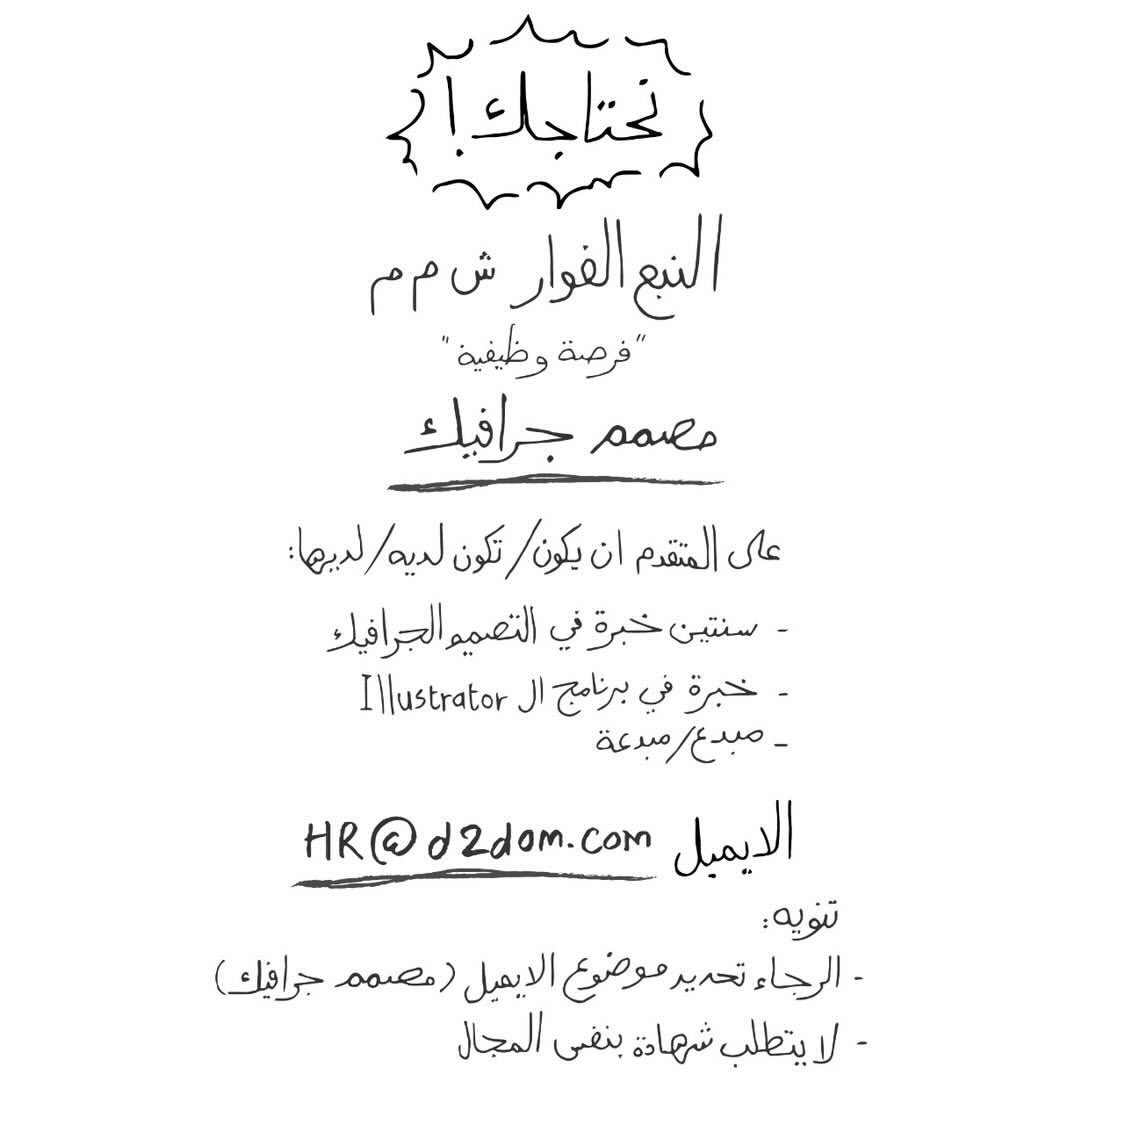 نحتاجك!
النبع الفوار ش م م
"فرصة وظيفية"
مصمم جرافيك
على المتقدم ان يكون/تكون لديه/لديها:
- سنتين خبرة في التصميم الجرافيك
- خبرة في برنامج ال Illustrator
- مبدع/مبدعة
الايميل HR@d2dom.com
تنويه:
- الرجاء تحديد موضوع الايميل (مصمم جرافيك)
- لا يتطلب شهادة بنفس المجال